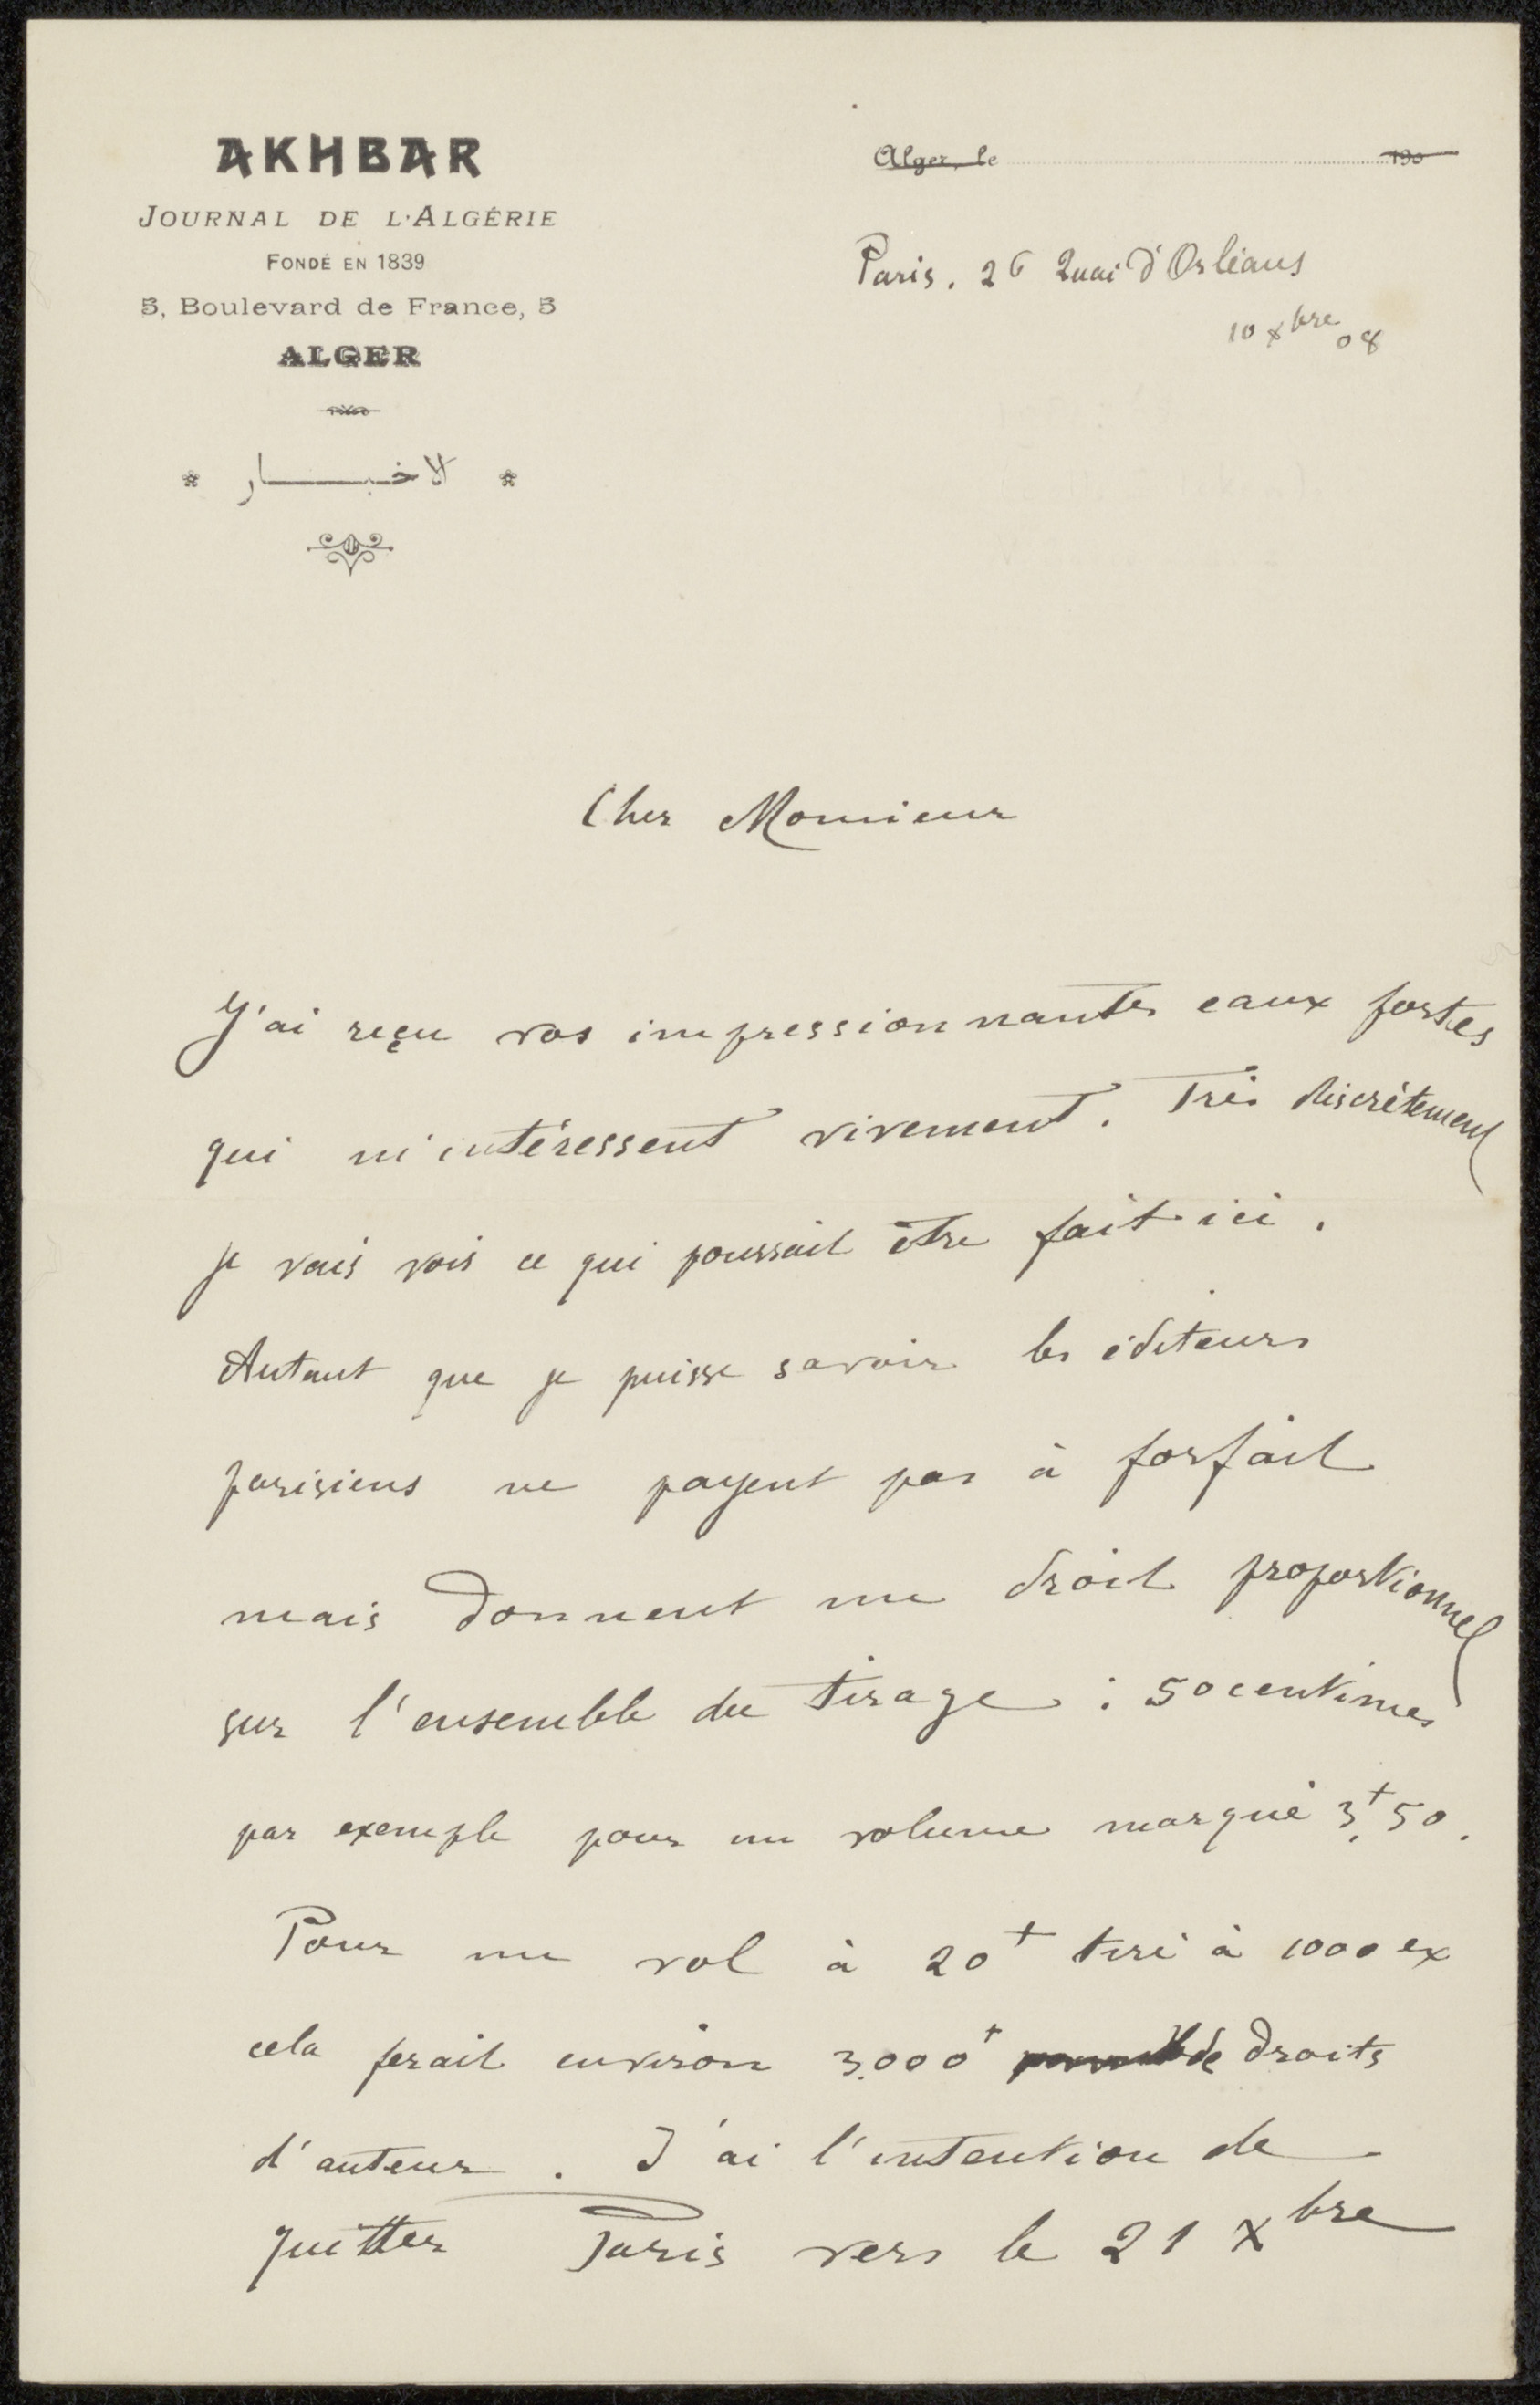 AKHBAR
JOURNAL DE L'ALGÉRIE
FONDÉ EN 1839
5, Boulevard de France, 5
ALGER
الاخبار
Alger, le 190
Paris. 26 Quai d'Orléans
10 Xbre 08
Cher Monsieur
J'ai reçu vos impressionnantes eaux fortes
qui m'intéressent vivement. Très discrètement
je vais voir ce qui pourrait être fait ici.
Autant que je puisse savoir les éditeurs
parisiens ne payent pas à forfait
mais donnent un droit proportionnel
sur l'ensemble du tirage : 50 centimes
par exemple pour un volume marqué 3f,50.
Pour un vol à 20f tiré à 1000 ex
cela ferait environ 3.000f de droits
d'auteur. J'ai l'intention de
quitter Paris vers le 21 Xbre